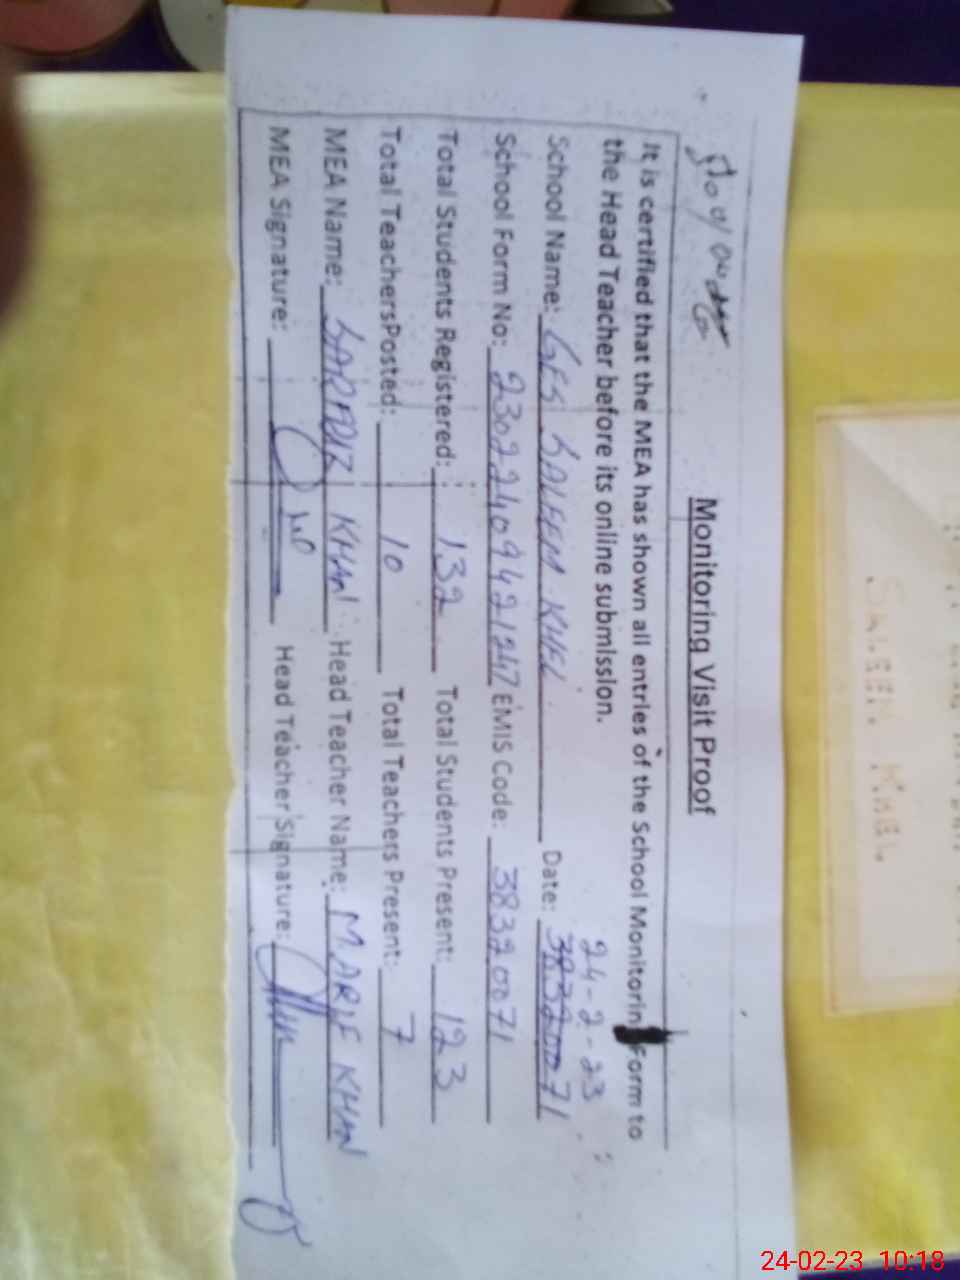 Monitoring Visit Proof
It is certified that the MEA has shown all entries of the School Monitorin Form to
the Head Teacher before its online submission.
24-2-23
School Name: GES SALEEM KHEL Date: 38320071
School Form No: 23022409421247 EMIS Code: 38320071
Total Students Registered: 132 Total Students Present: 123
Total TeachersPosted: 10 Total Teachers Present: 7
MEA Name: SARFARIZ KHAN Head Teacher Name: M.ARIF KHAN
MEA Signature: Head Teacher Signature:
SALEEM KHEL
24-02-23 10:18